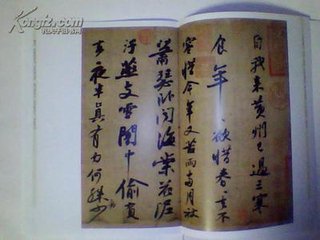 Kongfz.com
孔夫子旧书网
自我來黃州已過三寒
食年〻欲惜春〻去不
容惜今年又苦雨兩月秋
蕭瑟卧聞海棠花泥
汙燕支雪闇中偷負
去夜半真有力何殊少